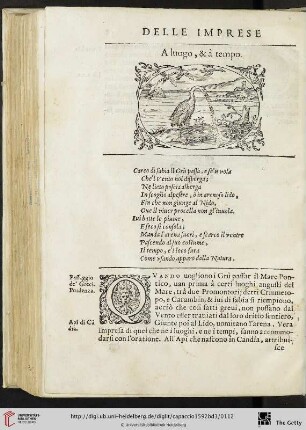 DELLE IMPRESE
A luogo, & à tempo.
Carco di sabia il Grù passa, e s'en vola
Che'l vento nol disperga;
Nè lieto poscia alberga
In scoglio alpestre, ò in arenoso lido,
Fin che non giunge al Nido,
Oue il viuer procella non gl'inuola.
Iui batte le piume,
E se consola;
Manda l'arena fuori, e scarca il ventre
Pascendo al suo costume,
Il tempo, e'l loco sarà
Come usando appare dalla Natura.
Passaggio
de' Grui.
Prudenza.
QVANDO uogliono i Grù passar il Mare Pon-
tico, uan prima à certi luoghi angusti del
Mare, trà due Promontorij detti Criumeto-
po, e Carambin; & iui di sabia si riempiono,
acciò che così fatti greui, non possano dal
Vento esser trattiati dal loro dritto sentiero,
Api di Cã
dia.
Giunte poi al Lido, uomitano l'arena. Vera
impresa di quel che ne i luoghi, e ne i tempi, sanno accommo-
darsi con l'oratione. All'Api che nascono in Candia, attribui-
sce
http://digi.ub.uni-heidelberg.de/diglit/capaccio1592bd3/0112
© Universitätsbibliothek Heidelberg
The Getty